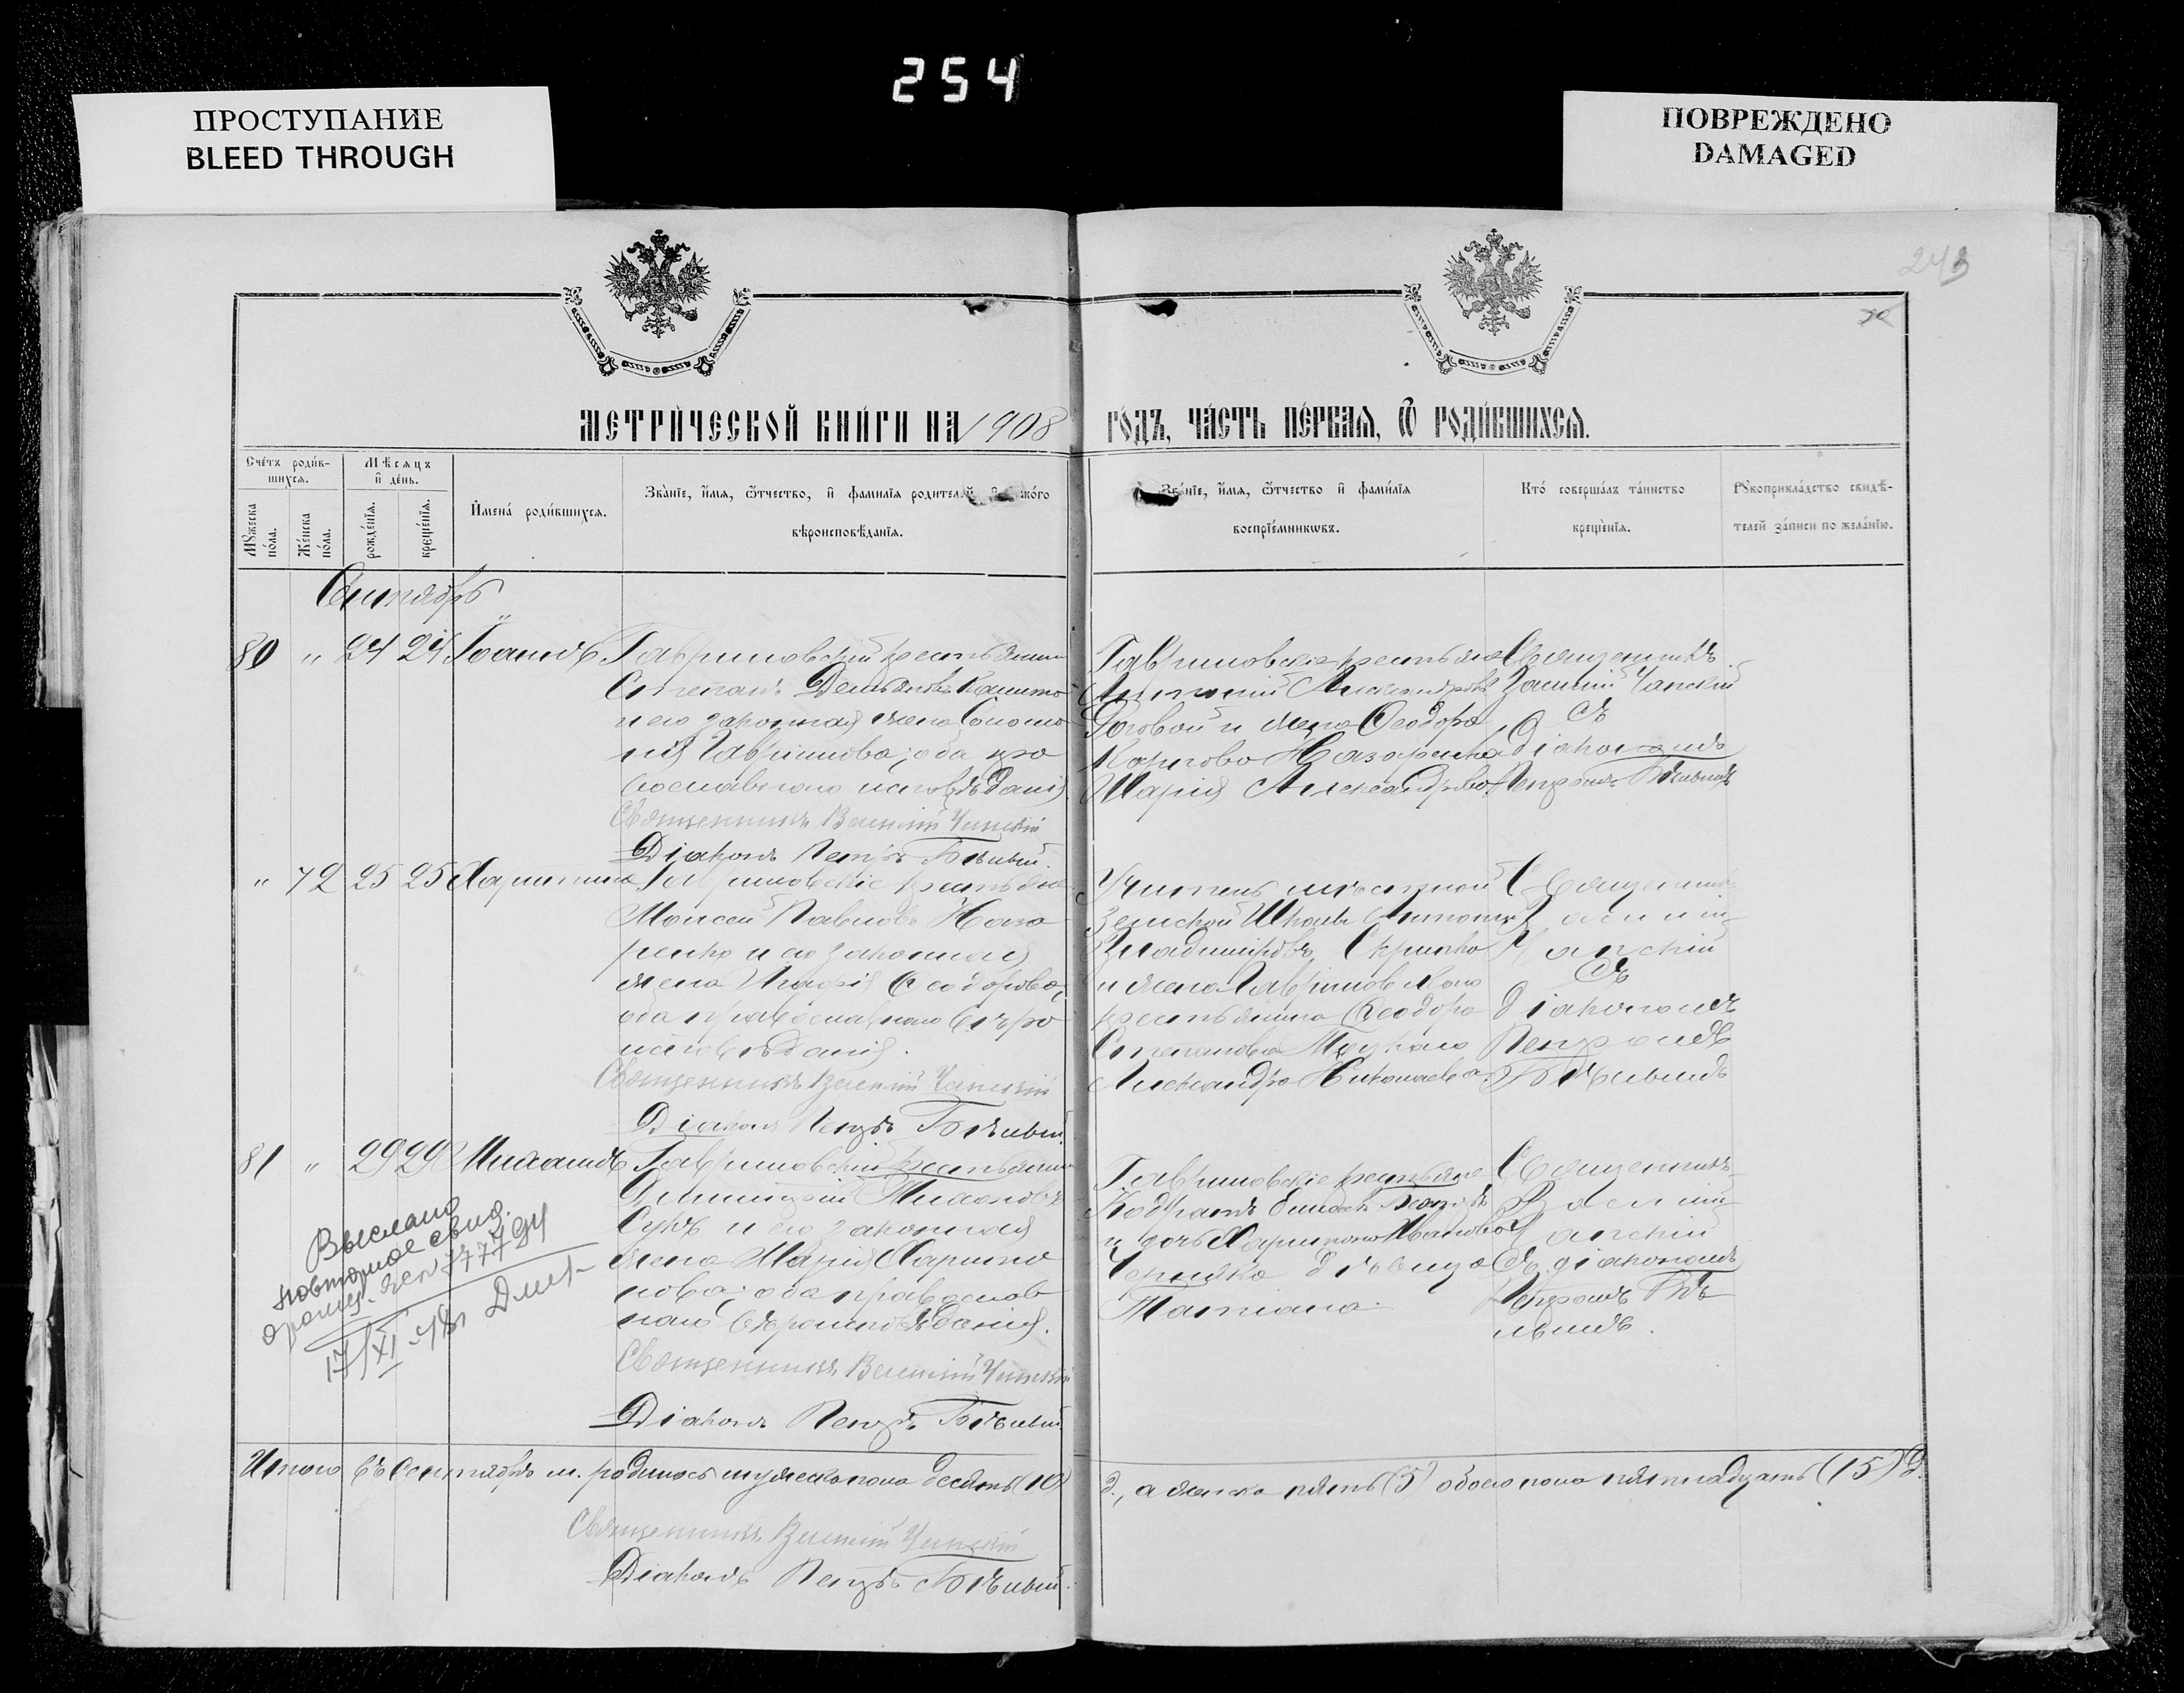 254
ПРОСТУПАНИЕ
BLEED THROUGH
ПОВРЕЖДЕНО
DAMAGED
243
МЕТРИЧЕСКОЙ КНИГИ НА 1908
ГОДЪ, ЧАСТЬ ПЕРВАЯ, Ѿ РОДИВШИХСЯ.
Счетъ родив-
шихся.
Мужеска
пола.
Женска
пола.
Мѣсяцъ
и день.
рожденія.
крещенія.
Имена родившихся.
Званіе, имя, отчество, и фамилія родителей, и
кого
вѣроисповѣданія.
Званіе, имя, отчество и фамилія
воспріемниковъ.
Кто совершалъ таинство
крещенія.
Рукоприкладство свидѣ-
телей записи по желанію.
Сентябрь
80 " 24 24 Іоаннъ
Гавриловскій крестьянинъ
Степанъ Демьяновъ
и его законная жена Соломо
нія Гаврилова; оба пра
вославнаго исповѣданія
Священникъ Василій Чапскій
Діаконъ Петръ Бѣлый.
Гавриловскіе крестьяне
Антоній Александровъ
Роговой и жена Ѳеодора
Карпова Назаренка
Марія Александрова
Священникъ
Василій Чапскій
съ
діакономъ
Петромъ Бѣлымъ
" 72 25 25 Харитина
Гавриловскіе крестьяне
Моисей Павловъ Наза
ренко и его законная
жена Марія Ѳеодорова,
оба православнаго вѣро
исповѣданія.
Священникъ Василій Чапскій
Діаконъ Петръ Бѣлый.
Учитель мѣстной
Земской Школы Антоній
Владиміровъ Скрипка
и жена Гавриловскаго
крестьянина Ѳеодора
Степанова
Александра Николаева
Священникъ
Василій
Чапскій
съ
діакономъ
Петромъ
Бѣлымъ
81 " 29 29 Михаилъ
Гавриловскій крестьянинъ
Димитрій Тихоновъ
и его законная
жена Марія Харито
нова; оба православ
наго вѣроисповѣданія.
Священникъ Василій Чапскій
Діаконъ Петръ Бѣлый
Гавриловскіе крестьяне
Кодратъ
и дочь Харитона Иванова
Черняка дѣвица
Татіана.
Священникъ
Василій
Чапскій
съ діакономъ
Петромъ Бѣ
лымъ.
Выслано
повторное свид.
777794
17/XI
Итого въ Сентябрѣ м. родилось мужеска пола десять (10)
д., а женска пять (5) обоего пола пятнадцать (15) д.
Священникъ Василій Чапскій
Діаконъ Петръ Бѣлый.